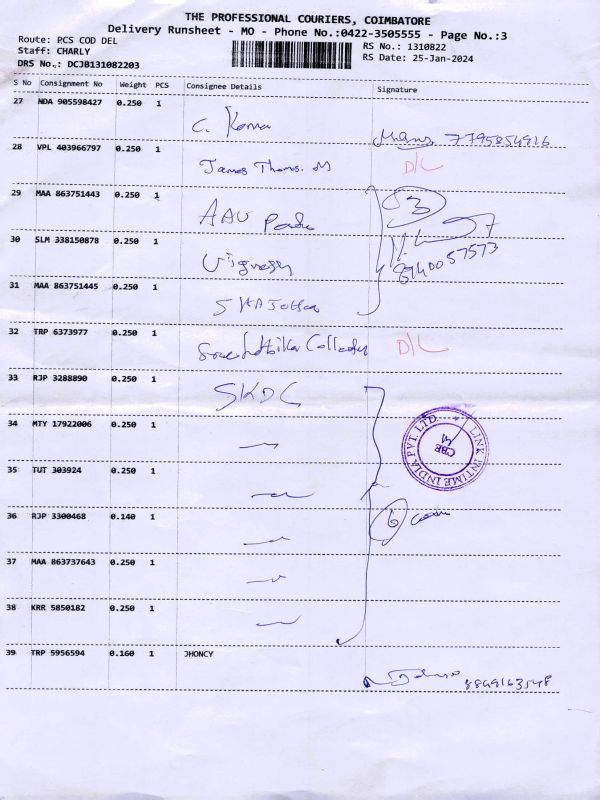 THE PROFESSIONAL COURIERS, COIMBATORE
Delivery Runsheet - MO - Phone No.:0422-3505555 - Page No.:3
Route: PCS COD DEL RS No.: 1310822
Staff: CHARLY RS Date: 25-Jan-2024
DRS No.: DCJB131082203
S No Consignment No Weight PCS Consignee Details Signature
27 NDA 905598427 0.250 1
C. 7795854916
28 VPL 403966797 0.250 1
James Thomas. M D/L
29 MAA 863751443 0.250 1
AAV 3
30 SLM 338150878 0.250 1
Vignesh 8940057573
31 MAA 863751445 0.250 1
32 TRP 6373977 0.250 1
D/L
33 RJP 3288890 0.250 1
SKDC
34 MTY 17922006 0.250 1
LINK INTIME INDIA PVT. LTD
CBE
35 TUT 303924 0.250 1
36 RJP 3300468 0.140 1
6
37 MAA 863737643 0.250 1
38 KRR 5850182 0.250 1
39 TRP 5956594 0.160 1 JHONCY
8849163548